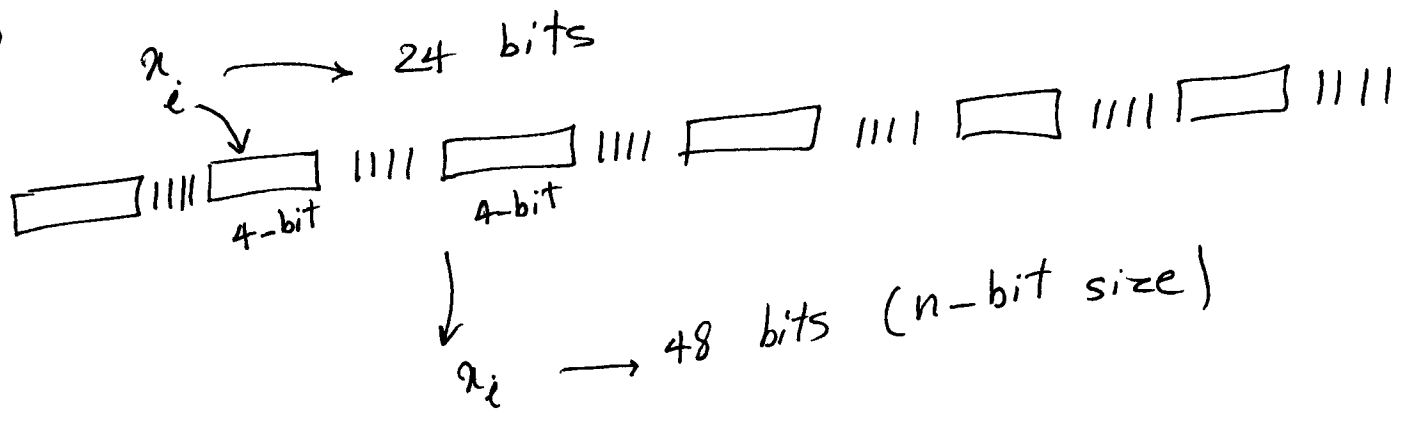 x_i → 24 bits
|||| |||| |||| |||| |||| ||||
4-bit 4-bit
x_i → 48 bits (n-bit size)